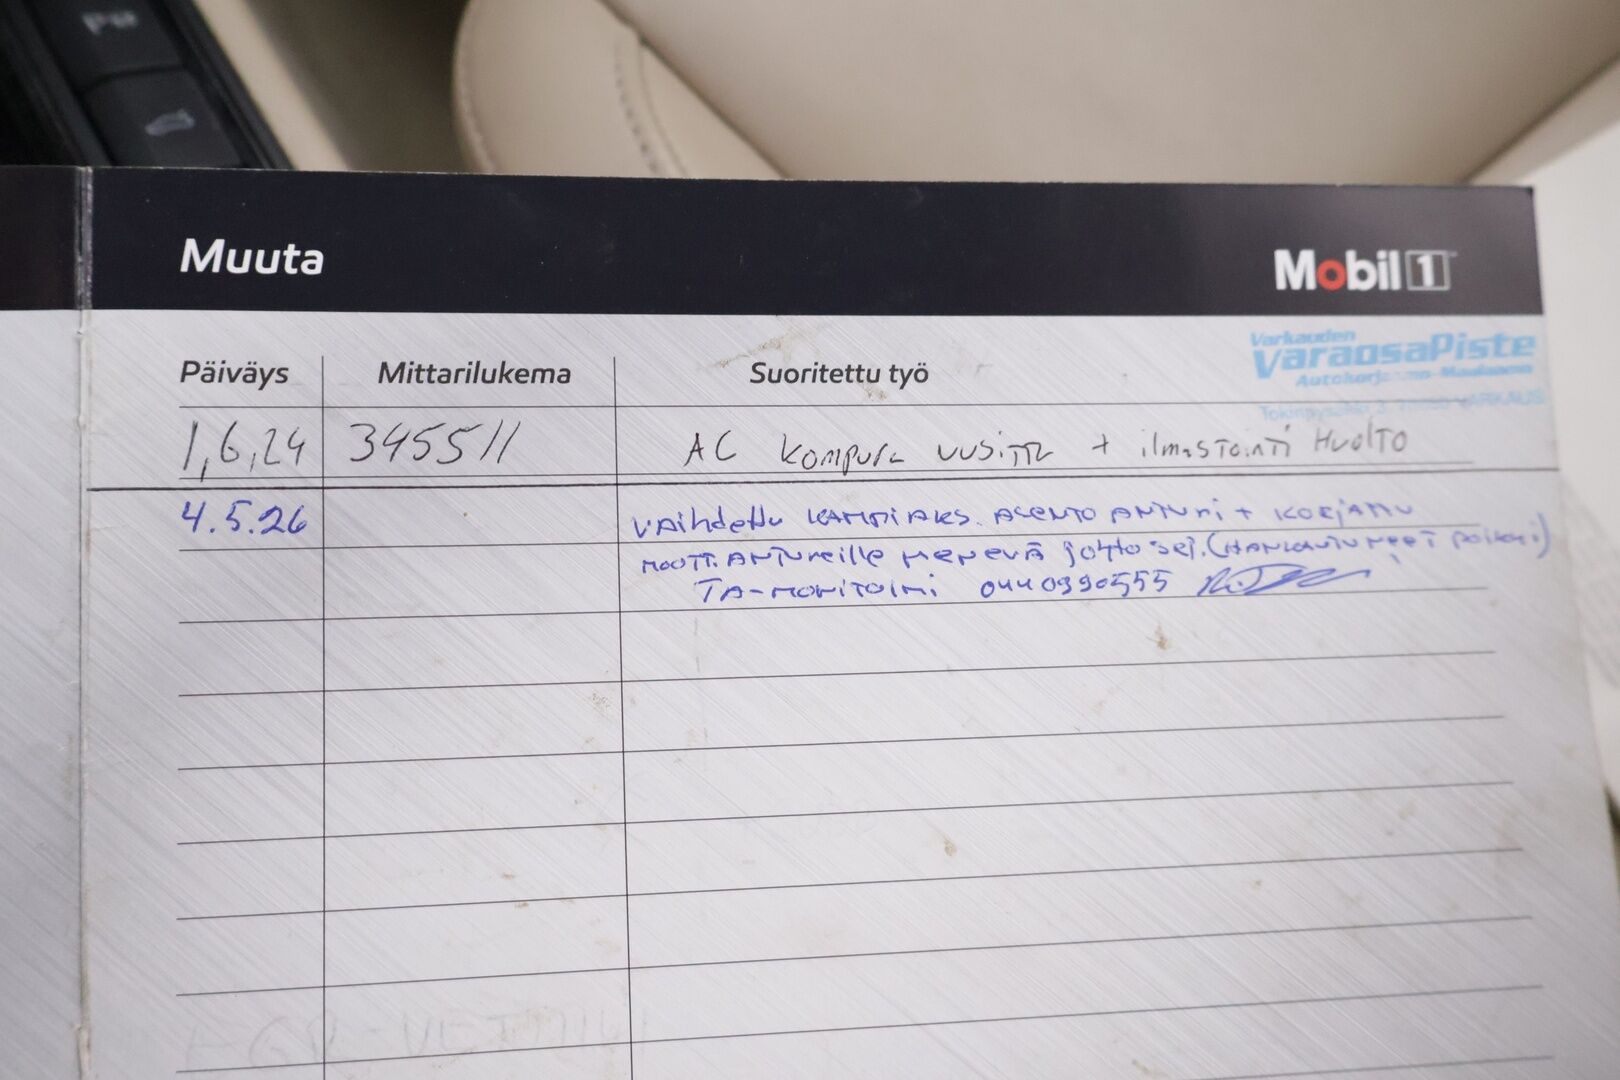 Muuta
Mobil 1
Varkauden
VaraosaPiste
Päiväys Mittarilukema Suoritettu työ
1,6,24 345511 AC Kompura uusittu + ilmastointi Huolto
4.5.26 VAihdettu KAMPIAKS. ASENTO ANTURI + KORJATTU
MOOTT.ANTUREILLE MENEVÄ JOHTOSEJ. (HANKAUTUNEET POIKKI)
TA-MONITOIMI 0440990555